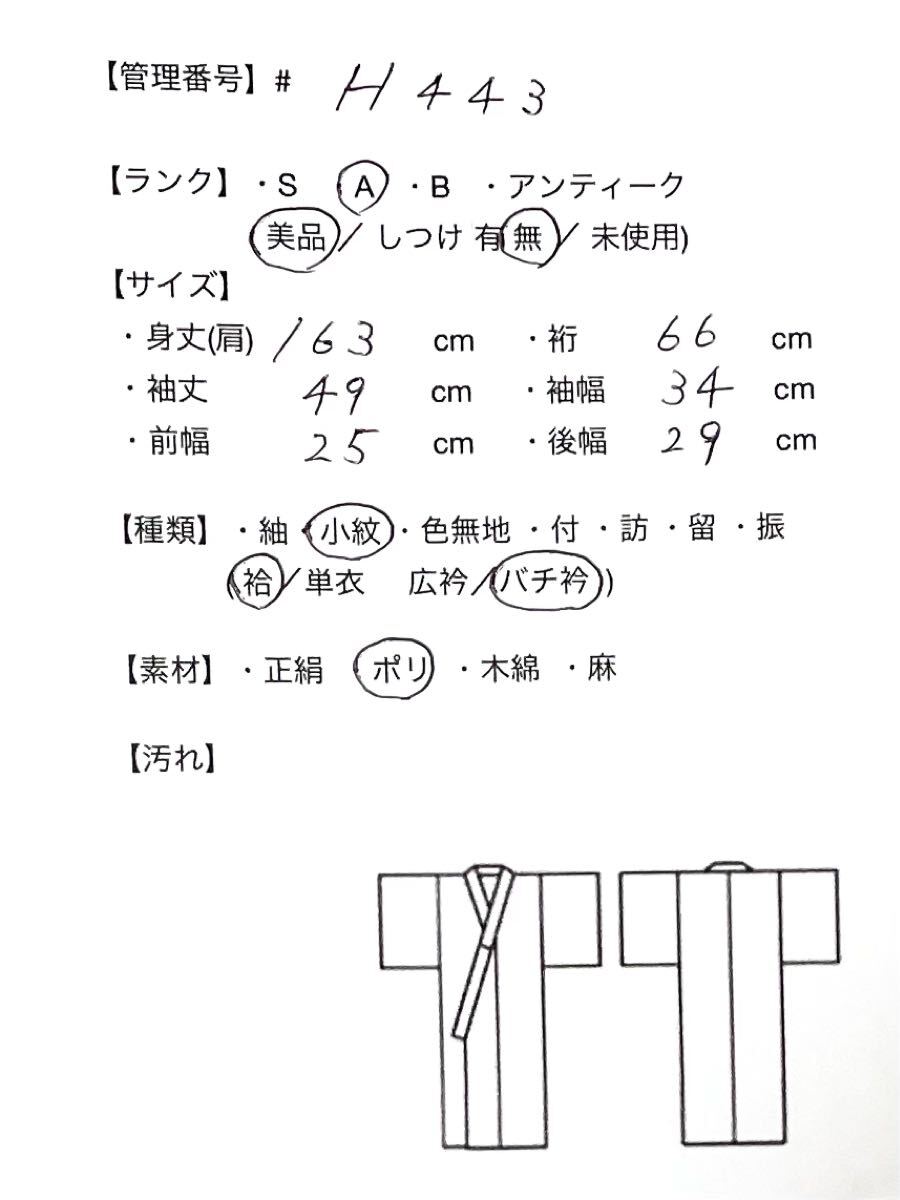 【管理番号】# H443
【ランク】・S A ・B ・アンティーク
(美品/ しつけ 有 無/ 未使用)
【サイズ】
・身丈(肩) 163 cm ・裄 66 cm
・袖丈 49 cm ・袖幅 34 cm
・前幅 25 cm ・後幅 29 cm
【種類】・紬・小紋・色無地・付・訪・留・振
(袷/単衣 広衿/バチ衿))
【素材】・正絹 ポリ ・木綿 ・麻
【汚れ】